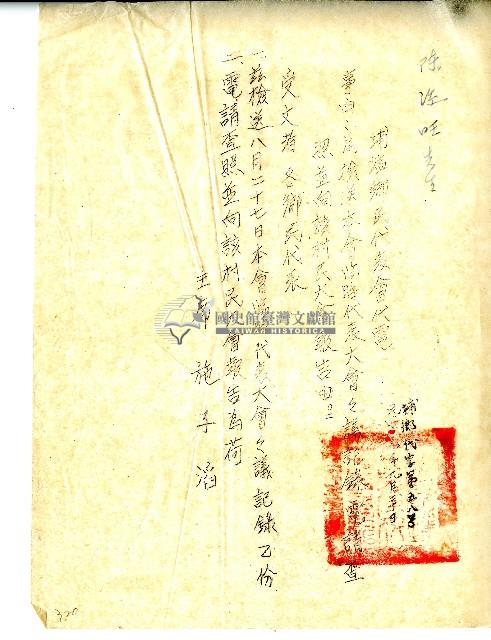 陳 旺先生
埔鹽鄉民代表會代電
埔鄉代字第五八号
事由: 為檢送本會臨時代表大會之議記錄電請查
照並向該村民大會報告由
受文者 各鄉民代表
一、茲檢送八月二十七日本會臨時代表大會之議記錄乙份
二、電請查照並向該村民大會報告為荷
主席 施 子
國史館臺灣文獻館
TAIWAN HISTORICA
320